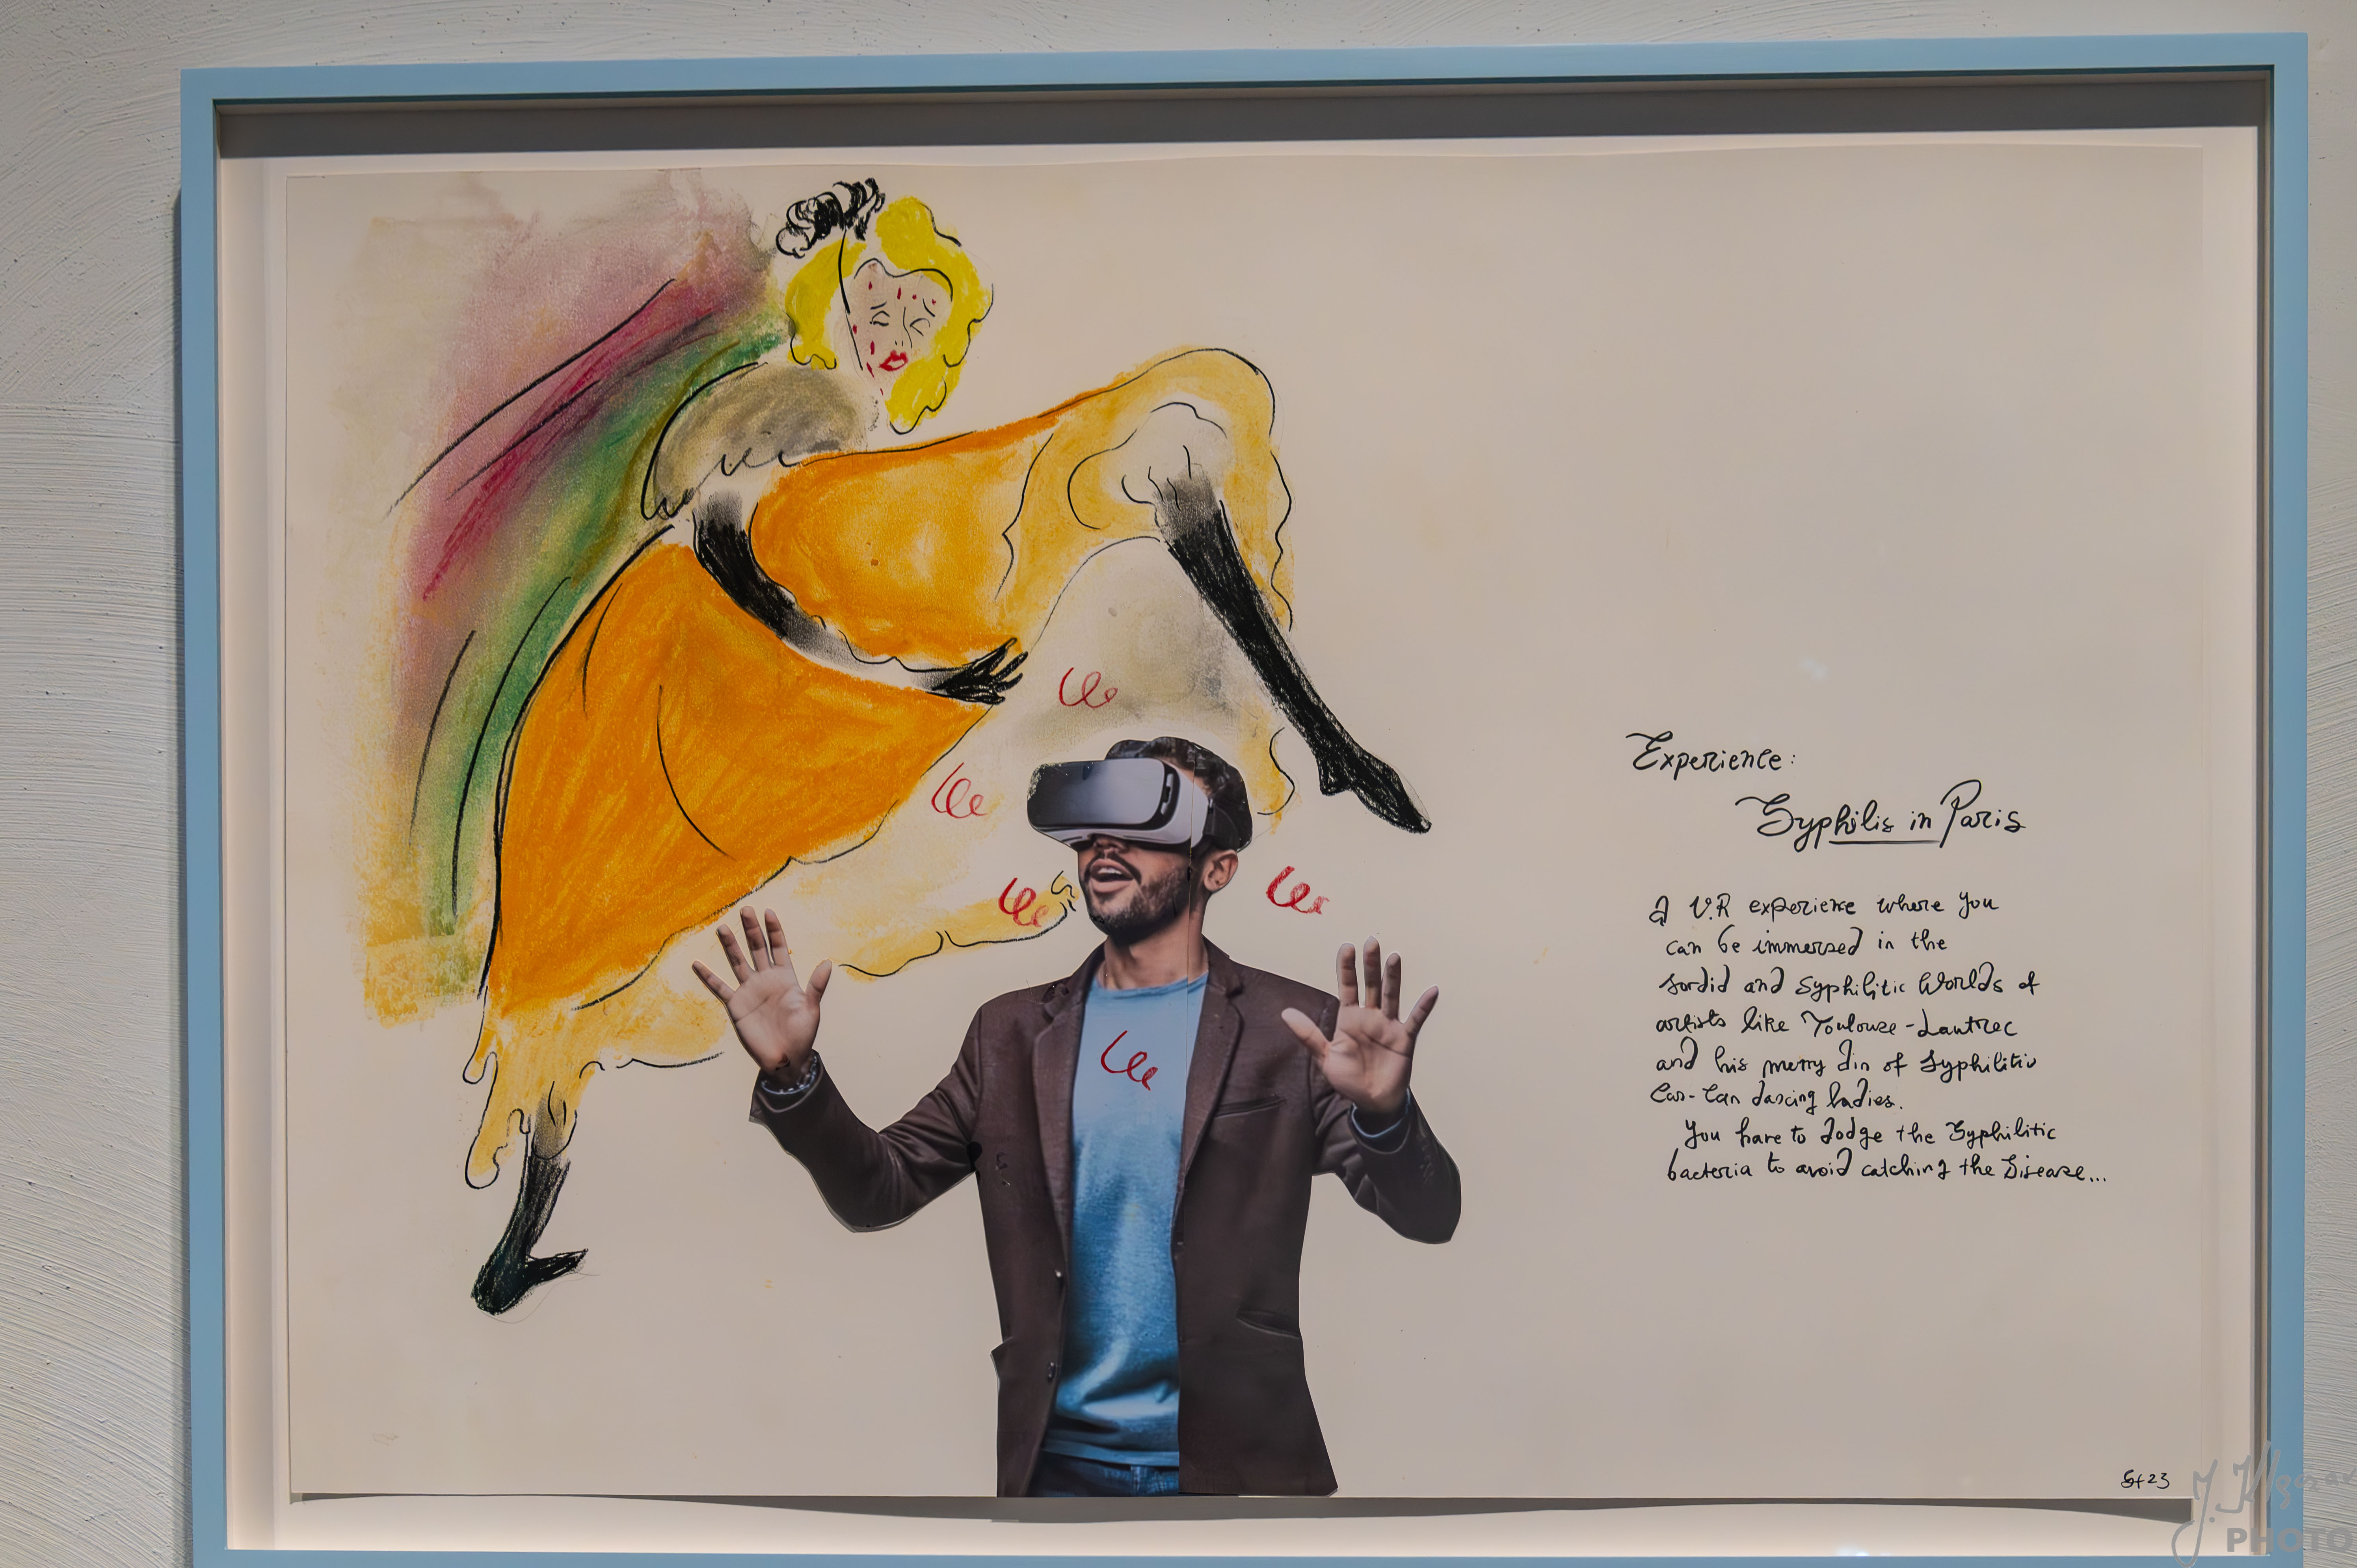 Experience:
Syphilis in Paris
A V.R experience where you
can be immersed in the
sordid and Syphilitic Worlds of
artists like Toulouse-Lautrec
and his merry din of Syphilitic
Can-Can dancing ladies.
You have to dodge the Syphilitic
bacteria to avoid catching the Disease...
23
J.
PHOTO